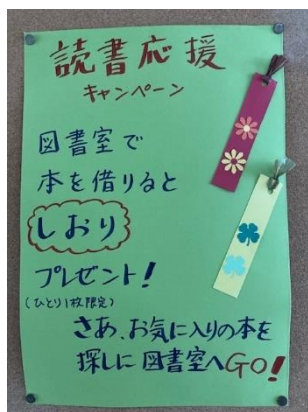 読書応援
キャンペーン
図書室で
本を借りると
しおり
プレゼント!
(ひとり1枚限定)
さあ、お気に入りの本を
探しに図書室へGO!